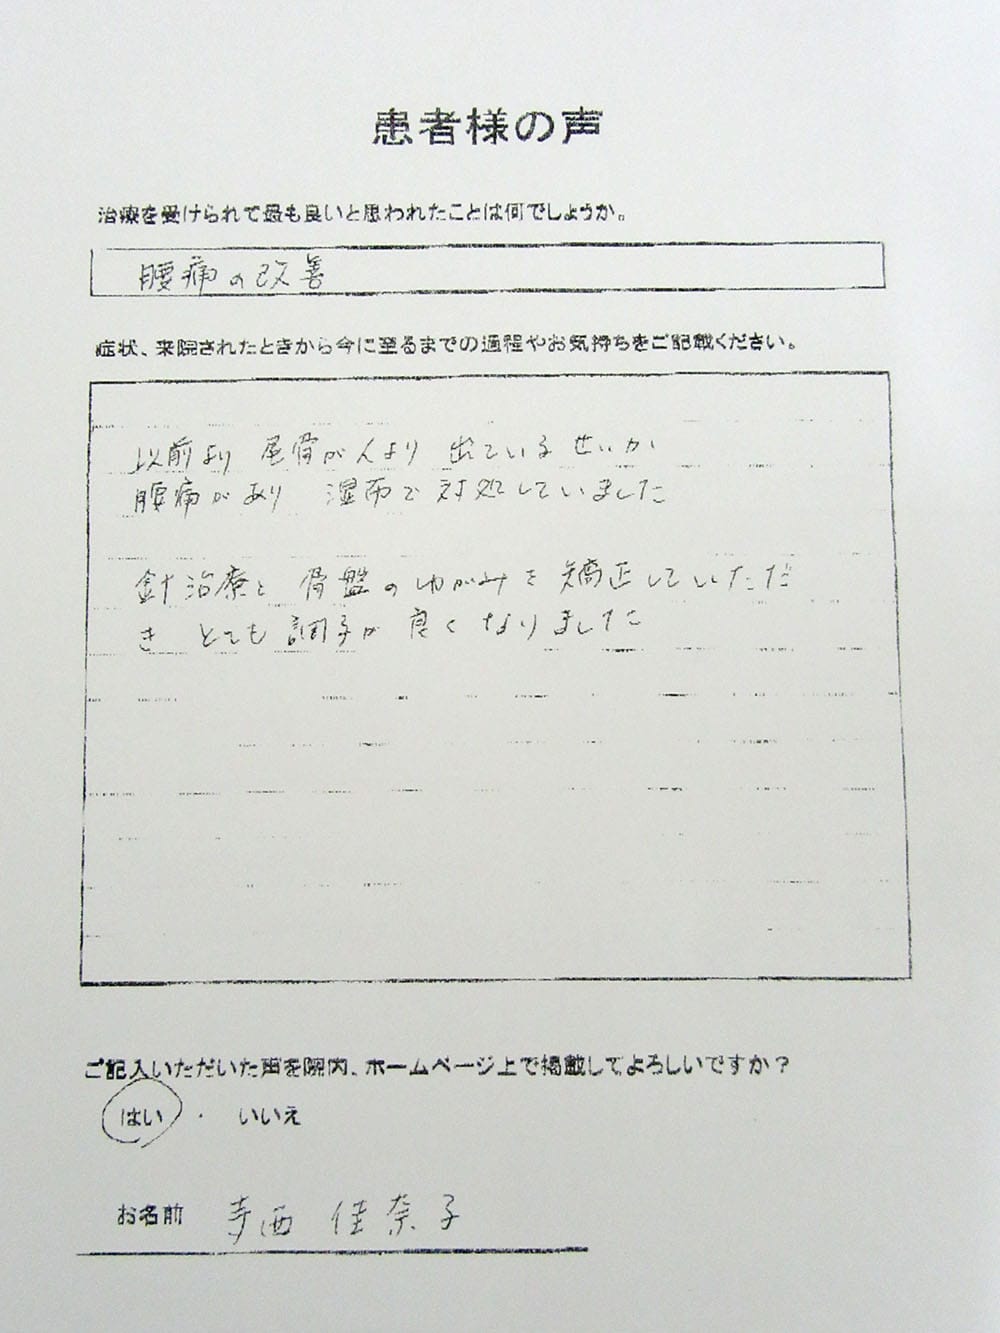 患者様の声
治療を受けられて最も良いと思われたことは何でしょうか。
腰痛の改善
症状、来院されたときから今に至るまでの過程やお気持ちをご記載ください。
以前より 尾骨が人より 出ているせいか
腰痛があり 湿布で対処していました
針治療と 骨盤のゆがみを矯正していただ
き とても調子が 良くなりました
ご記入いただいた声を院内、ホームページ上で掲載してよろしいですか？
はい ・ いいえ
お名前 寺西 佳奈子